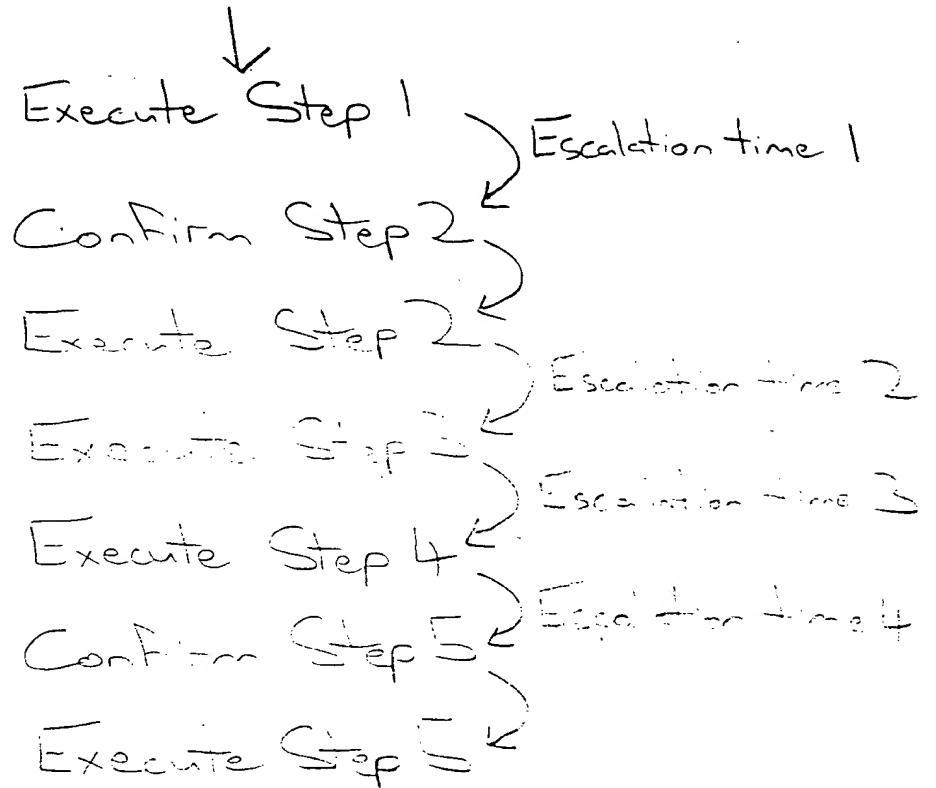 Execute Step 1
Escalation time 1
Confirm Step 2
Execute Step 2
Escalation time 2
Execute Step 3
Escalation time 3
Execute Step 4
Escalation time 4
Confirm Step 5
Execute Step 5